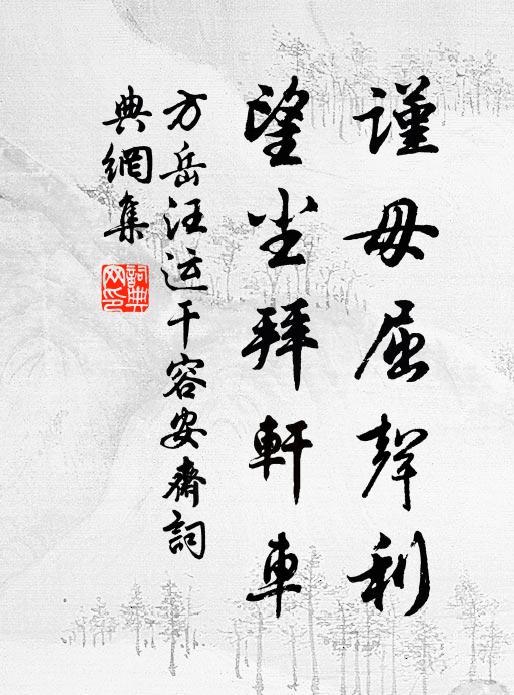 谨毋屈聲利
望尘拜軒車
方岳汪运干容安齋詞
典網集
詞典网印